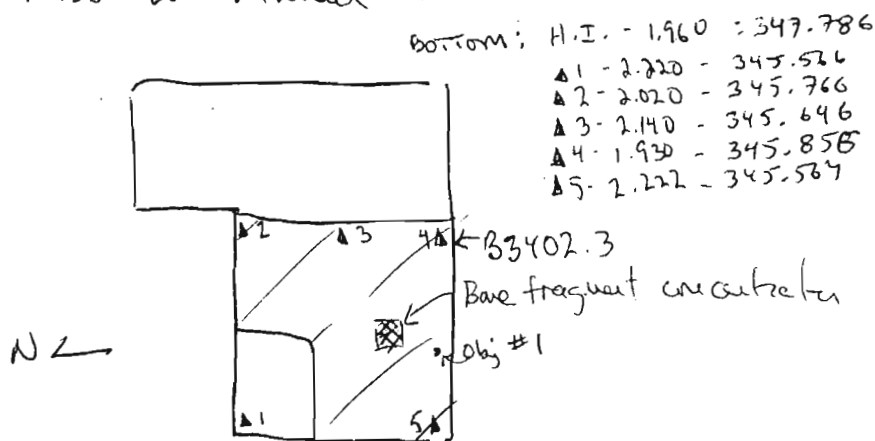 BOTTOM: H.I. - 1.960 = 347.786
▲1 - 2.220 - 345.566
▲2 - 2.020 - 345.766
▲3 - 2.140 - 345.646
▲4 - 1.930 - 345.856
▲5 - 2.222 - 345.564
▲2 ▲3 4▲ ← B3402.3
Bone fragment concentration
N ←
Obj #1
▲1 5▲